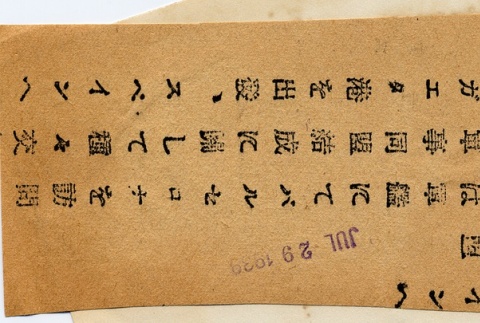 インへ
軍艦にてバルセロナを訪問
軍事同盟結成に關して種々交
ガエタ港を出發、スペインへ
JUL 29 1939